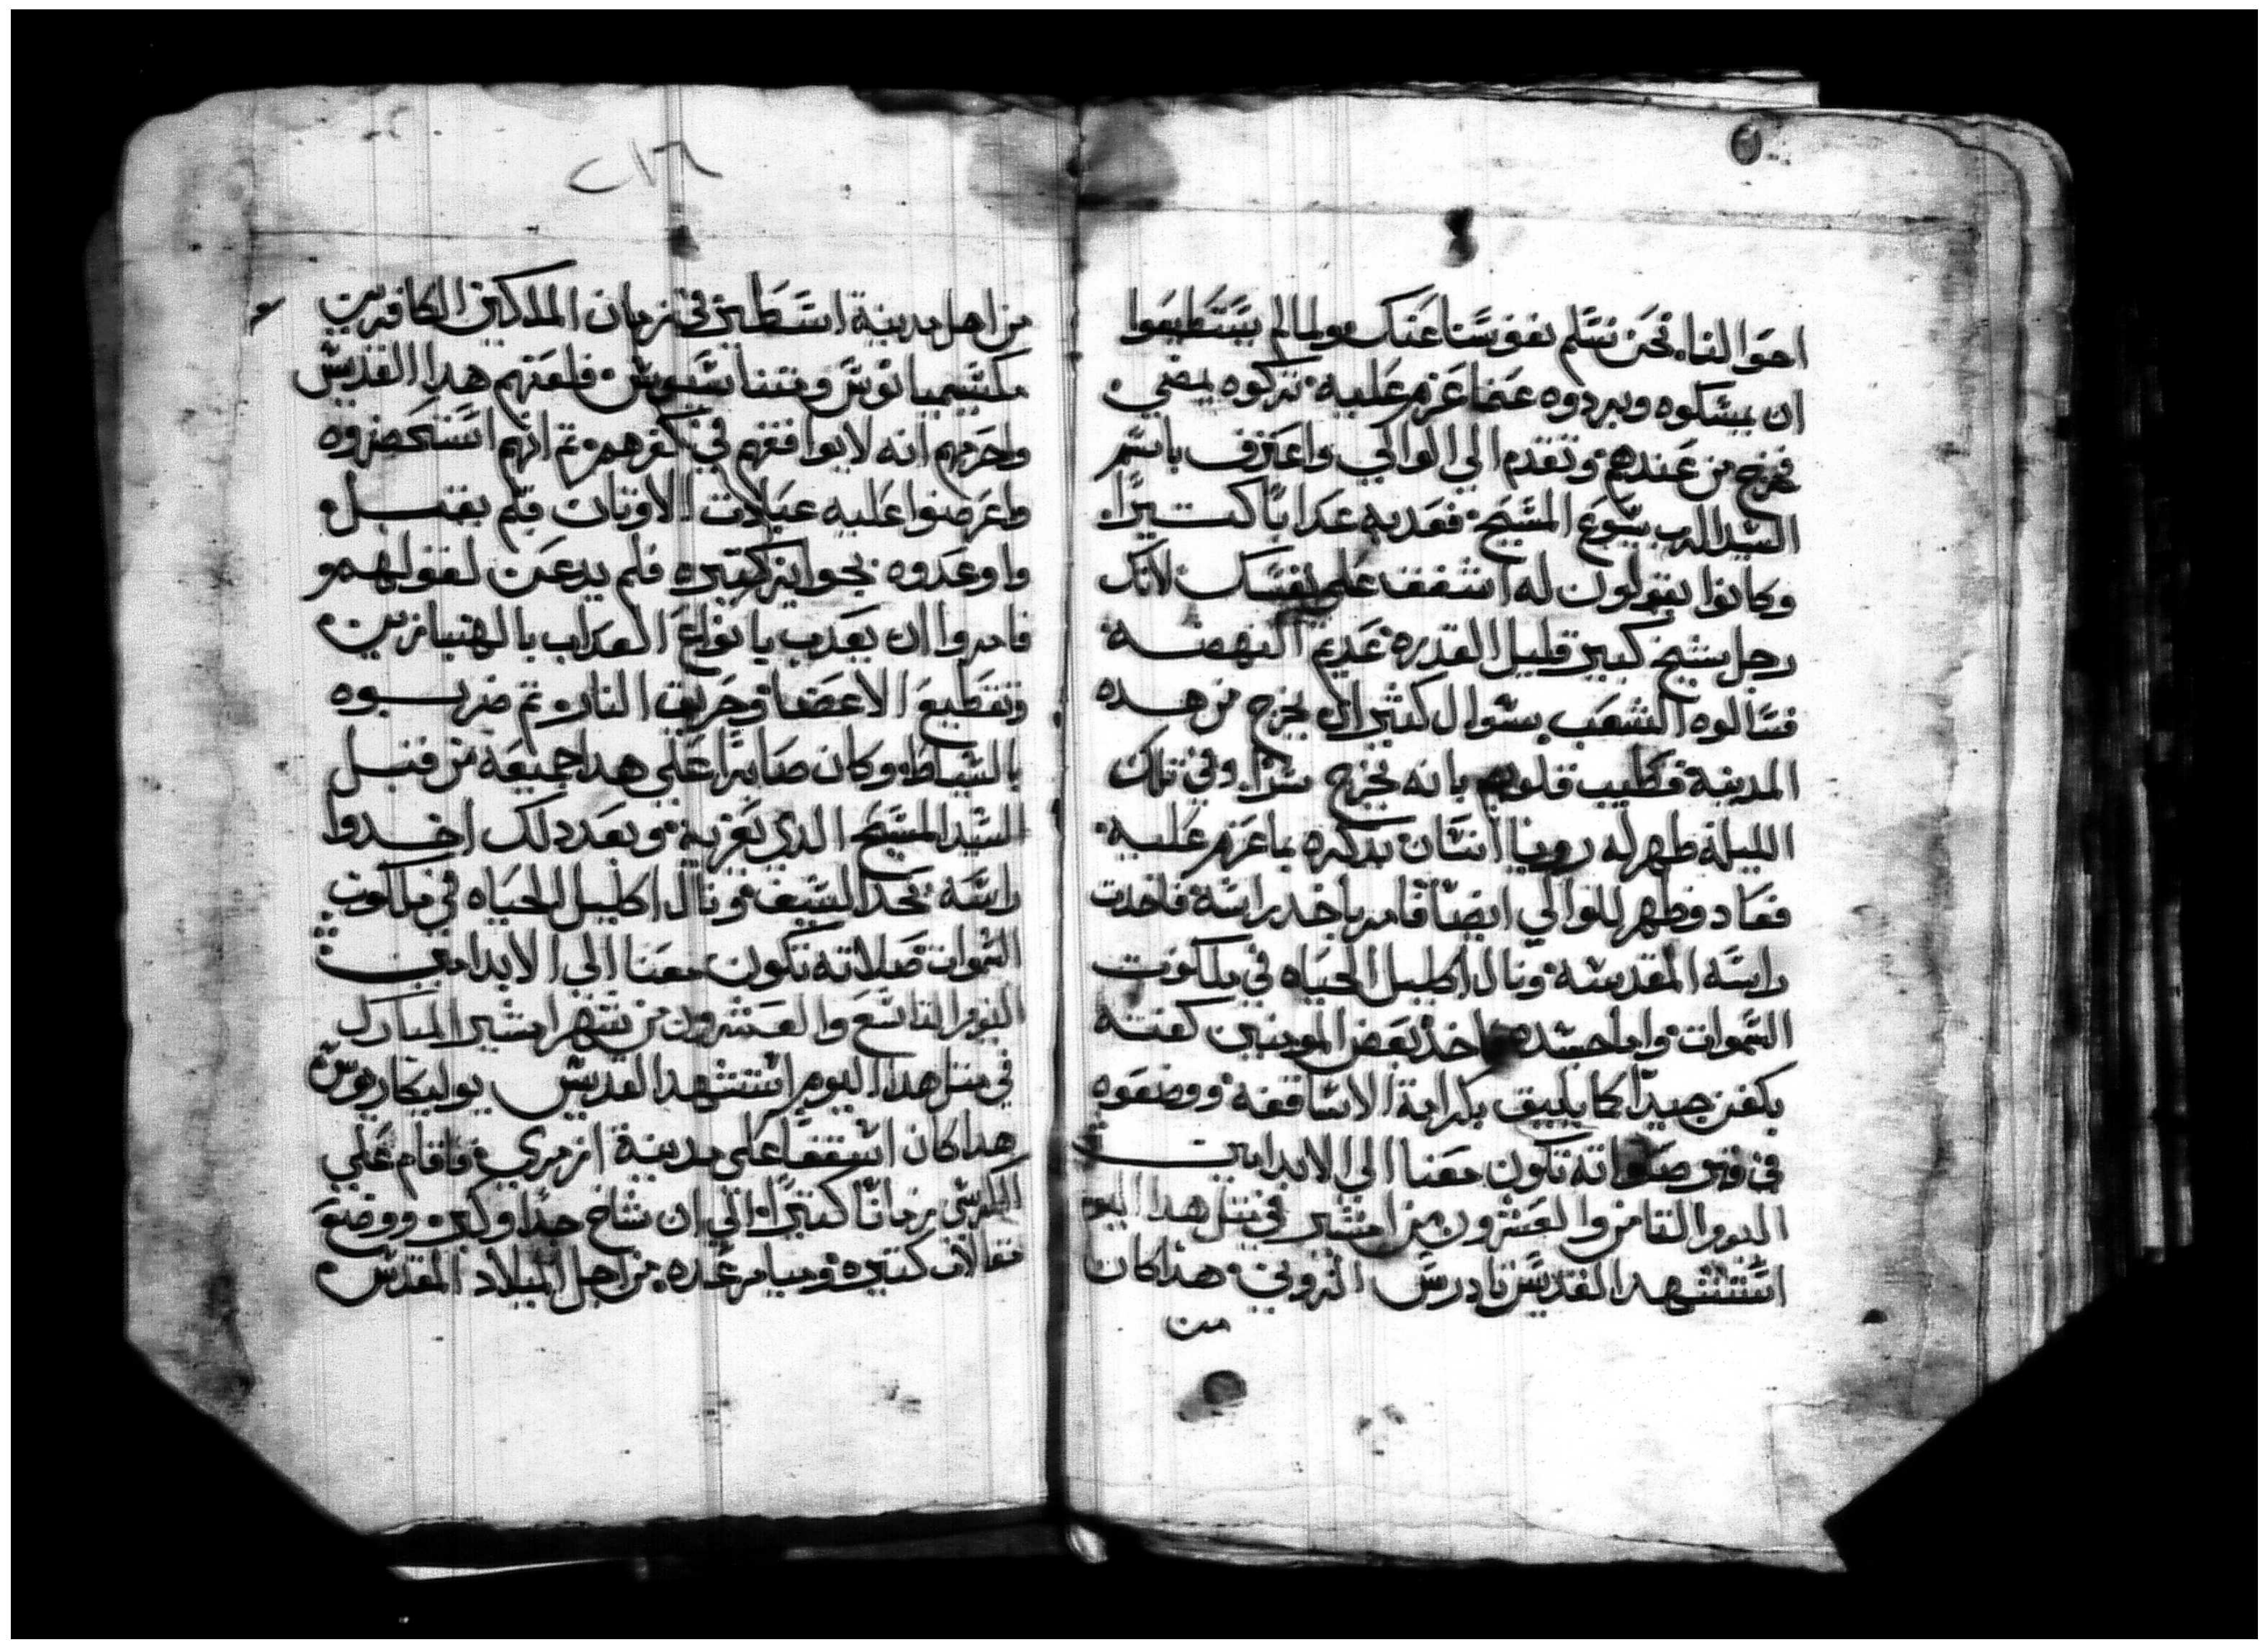 احوا لنا. نحن نسلم نفوسنا عنك. ولما لم يستطيعوا
ان يمسكوه ويردوه عما عزم عليه. تركوه يمضي.
فخرج من عندهم. وتقدم الي الوالي. واعترف باسم
السيد الرب يسوع المسيح. فعدبه عدابا كتيرا.
وكانوا يقولون له اشفق علي نفسك. لانك
رجل شيخ كبير قليل القدره. عديم النهضه
فسالوه الشعب بسوال كثير ان يخرج من هده
المدينة فطيب قلوبهم بانه يخرج سرا. وفي تلك
الليلة ظهر له رويا انسان يدكره بما عزم عليه.
فعاد وظهر للوالي ايضا فامر باخد راسه فاخدت
راسه المقدسه. ونال اكليل الحياه في ملكوت
السموات. واما جسده اخد بعض المومنين كفنه
بكفن جيدا كما يليق بكرامة الاساقفه. ووضعوه
في قبر صلواته تكون معنا الي الابد امين
اليوم التامن والعشرون من امشير في مثل هدا اليوم
استشهد القديس تادرس الرومي. هدا كان
من
٢١٦
من اهل مدينة اسطير في زمان الملكين الكافرين
مكسيميانوس و فلعنهم هدا القديس
واحرمهم انه لا يوافقهم في كفرهم. تم انهم استحضروه
واعرضوا عليه عبادت الاوتان فلم يقبل.
واوعدوه بجوايز كتيره فلم يدعن لقولهم و
فامروا ان يعدب بانواع العداب بالهنبازين.
وتقطيع الاعضا. وحريق النار. تم ضربوه
بالسياط. وكان صابرا علي هدا جميعه من قبل
السيد المسيح الدي يعزيه. وبعد دلك اخدوا
راسه بحد السيف. ونال اكليل الحياه في ملكوت
السموات صلاته تكون معنا الي الابد امين
اليوم التاسع والعشرون من شهر امشير المبارك
في متل هدا اليوم استشهد القديس بوليكاربوس
هدا كان اسقفا علي مدينة ازمري. فاقام علي
الكرسي زمانا كتيرا. الي ان شاخ جدا وكبر. ووضع
مقالات كتيره. وميامر عده. من اجل الميلاد المقدس.